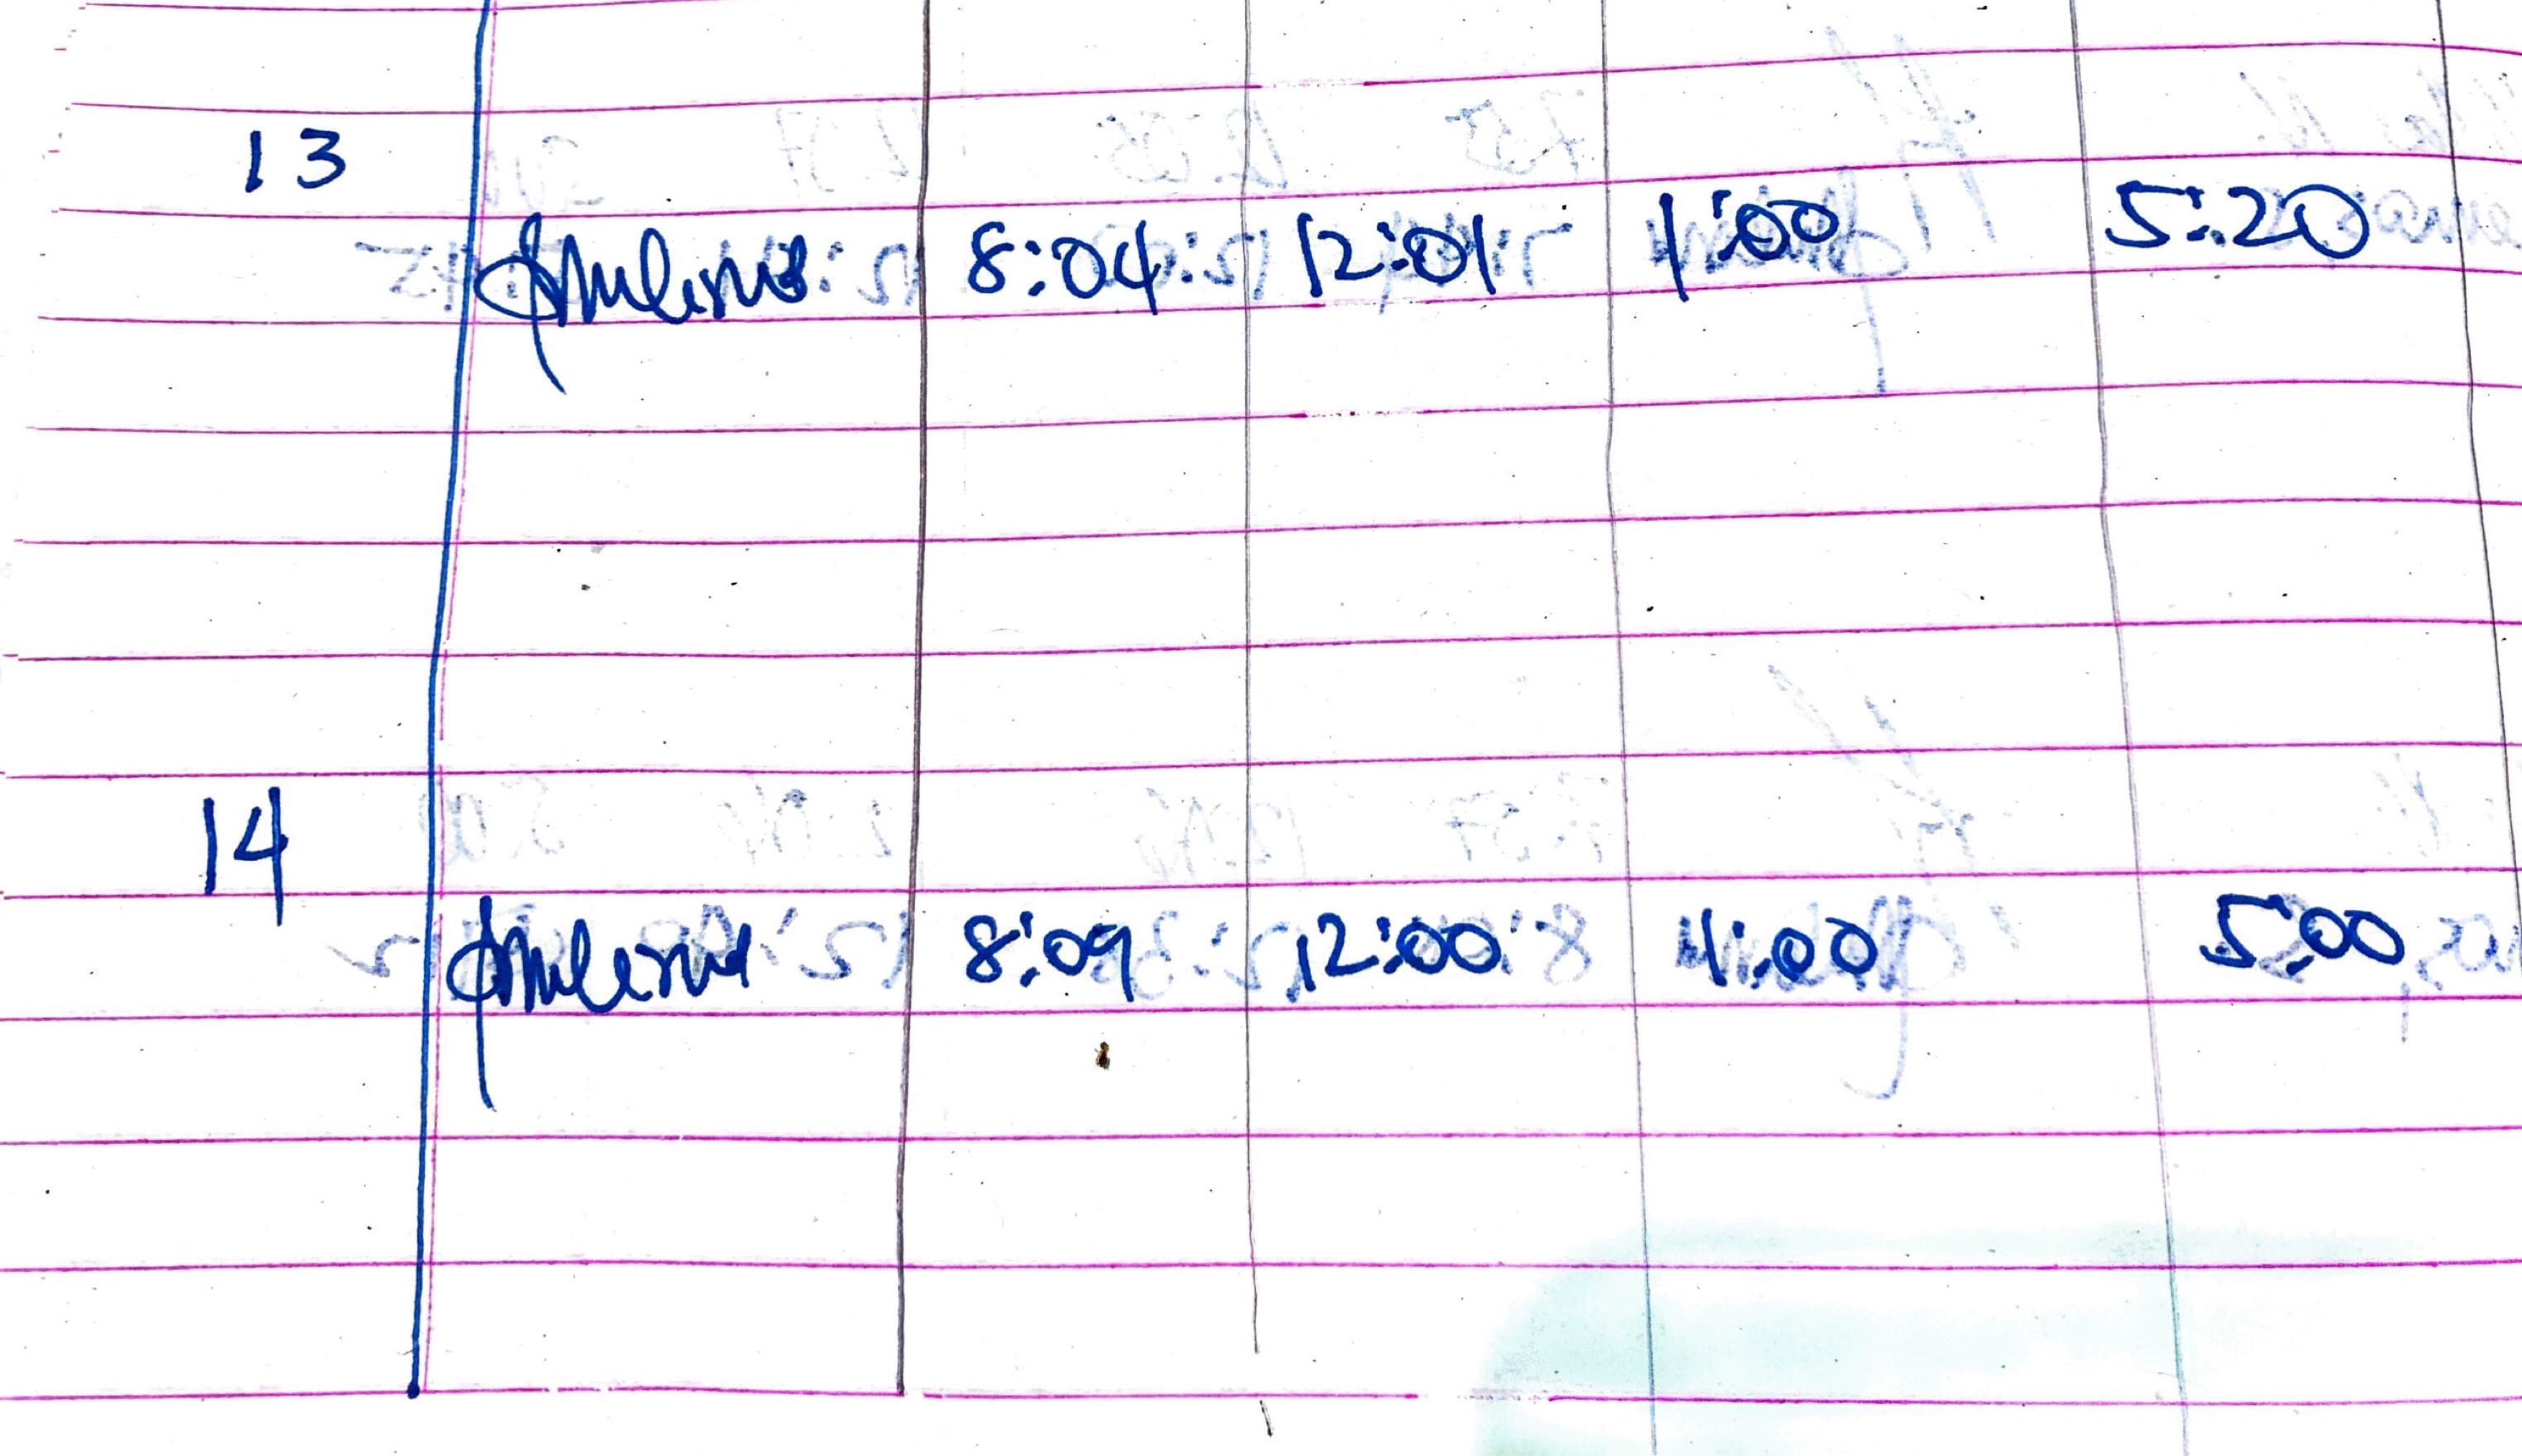 13
8:04 12:01 1:00 5:20
14
8:09 12:00 1:00 5:00